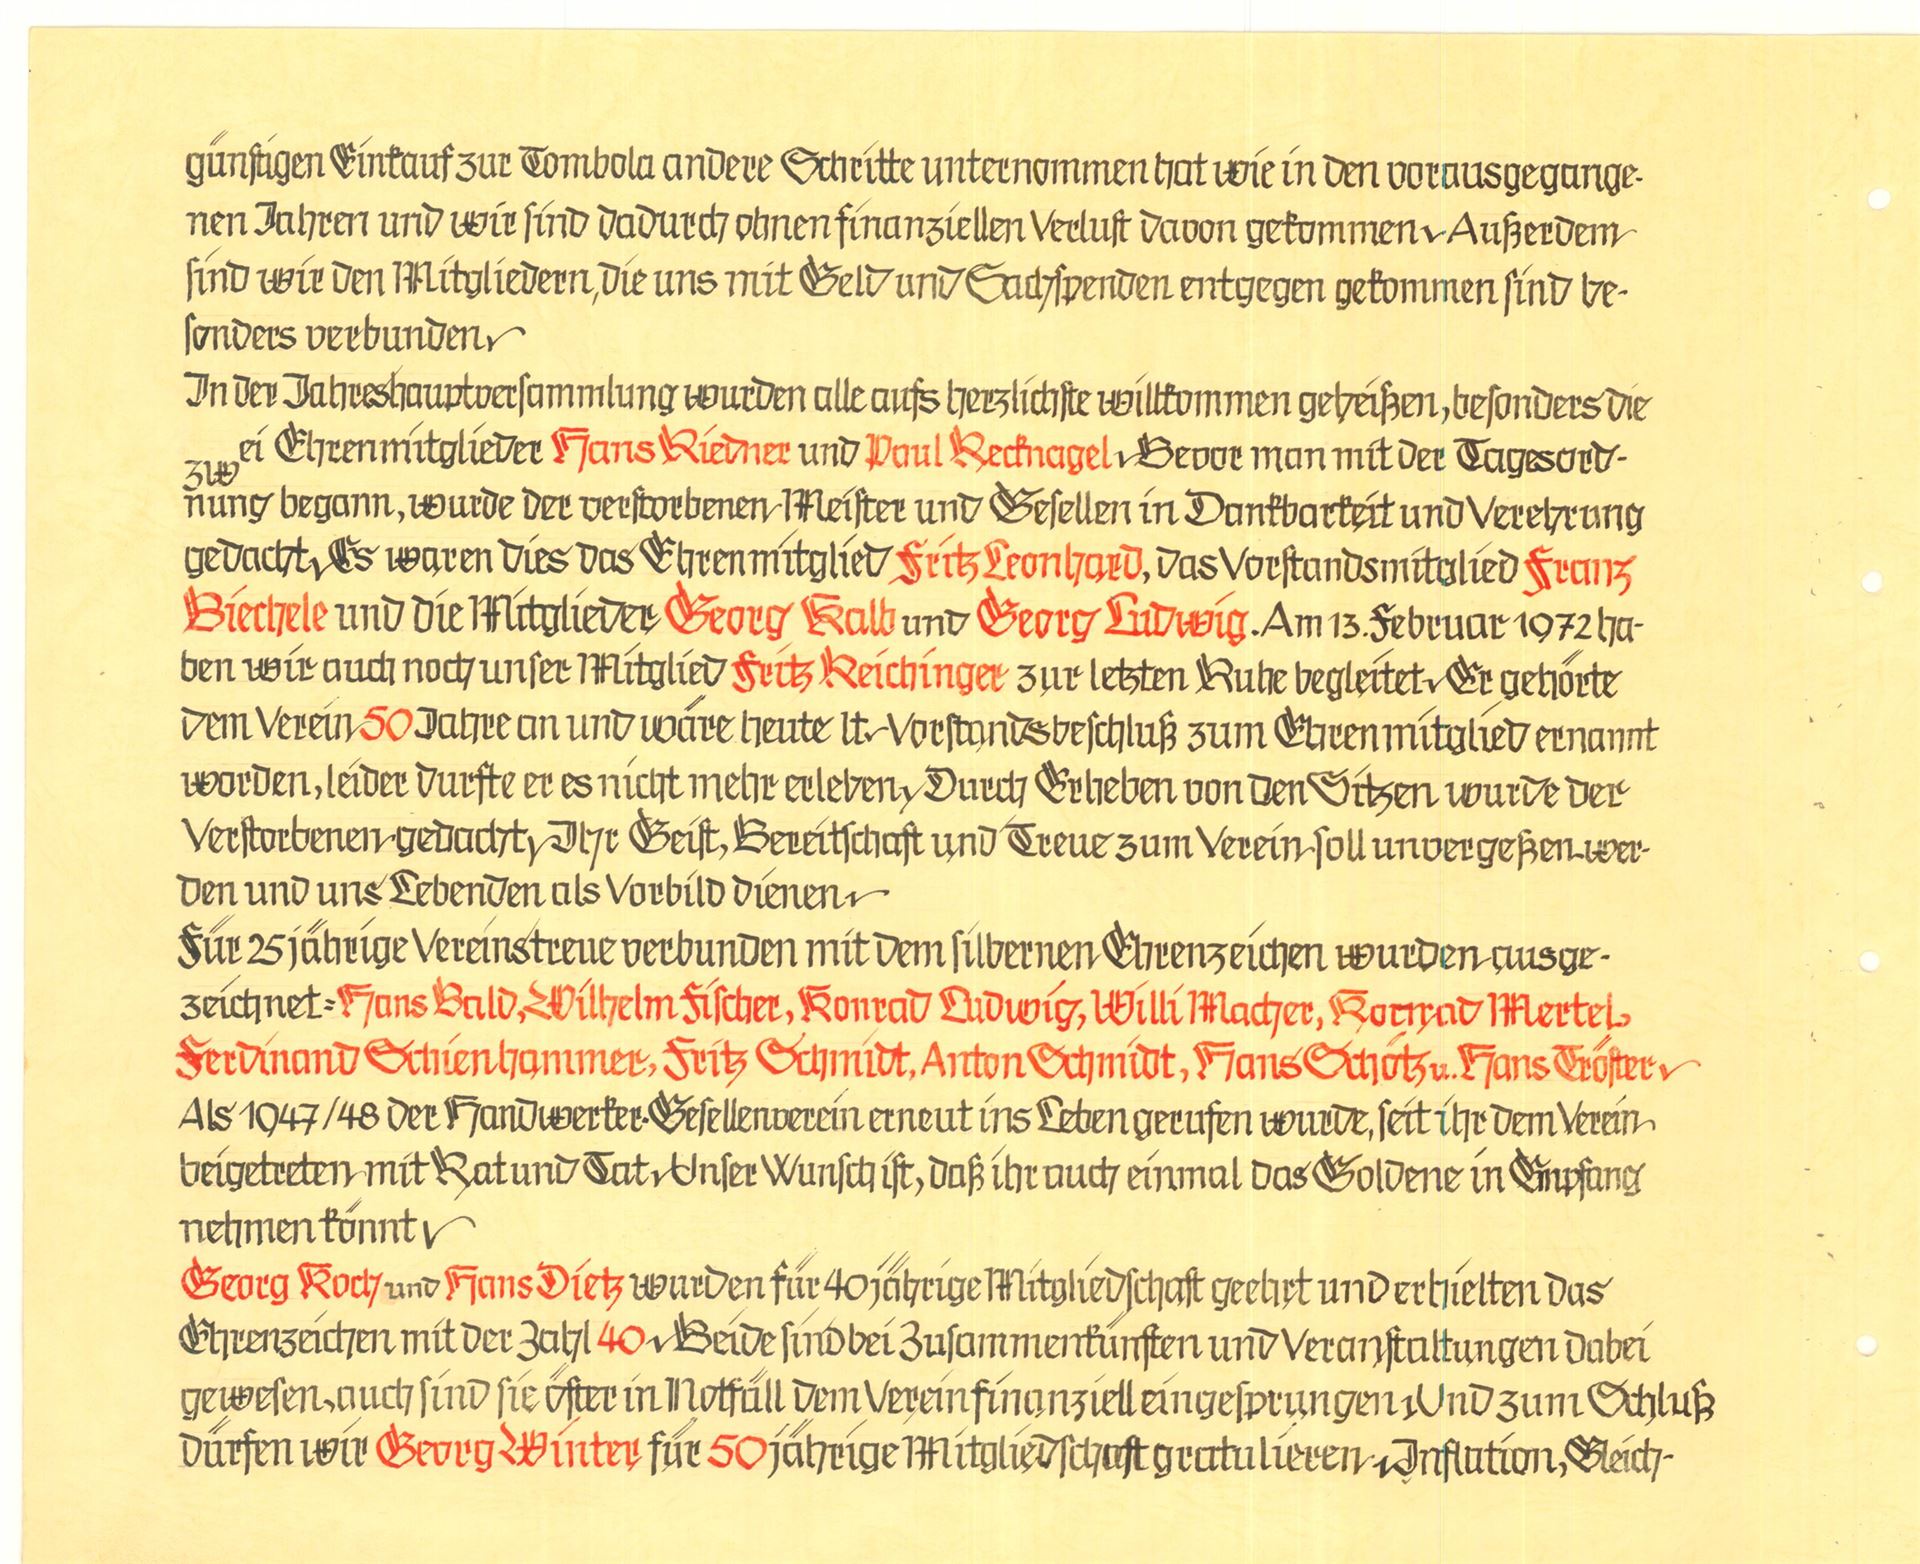 günstigen Einkauf zur Tombola andere Schritte unternommen hat wie in den vorausgegange-
nen Jahren und wir sind dadurch ohnen finanziellen Verlust davon gekommen. Außerdem
sind wir den Mitgliedern, die uns mit Geld und Sachspenden entgegen gekommen sind be-
sonders verbunden.
In der Jahreshauptversammlung wurden alle aufs herzlichste willkommen geheißen, besonders die
zwei Ehrenmitglieder Hans Riedner und Paul Recknagel. Bevor man mit der Tagesord-
nung begann, wurde der verstorbenen Meister und Gesellen in Dankbarkeit und Verehrung
gedacht. Es waren dies das Ehrenmitglied Fritz Leonhard, das Vorstandsmitglied Franz
Biechele und die Mitglieder Georg Kalb und Georg Ludwig. Am 13. Februar 1972 ha-
ben wir auch noch unser Mitglied Fritz Reichinger zur letzten Ruhe begleitet. Er gehörte
dem Verein 50 Jahre an und wäre heute lt. Vorstandsbeschluß zum Ehrenmitglied ernannt
worden, leider durfte er es nicht mehr erleben. Durch Erheben von den Sitzen wurde der
Verstorbenen gedacht. Ihr Geist, Bereitschaft und Treue zum Verein soll unvergeßen wer-
den und uns Lebenden als Vorbild dienen.
Für 25 jährige Vereinstreue verbunden mit dem silbernen Ehrenzeichen wurden ausge-
zeichnet: Hans Bald, Wilhelm Fischer, Konrad Ludwig, Willi Macher, Konrad Mertel,
Ferdinand Schienhammer, Fritz Schmidt, Anton Schmidt, Hans Schötz u. Hans Tröster.
Als 1947/48 der Handwerker-Gesellenverein erneut ins Leben gerufen wurde, seit ihr dem Verein
beigetreten mit Rat und Tat. Unser Wunsch ist, daß ihr auch einmal das Goldene in Empfang
nehmen könnt.
Georg Koch und Hans Dietz wurden für 40 jährige Mitgliedschaft geehrt und erhielten das
Ehrenzeichen mit der Zahl 40. Beide sind bei Zusammenkünften und Veranstaltungen dabei
gewesen, auch sind sie öfter in Notfäll dem Verein finanziell eingesprungen. Und zum Schluß
dürfen wir Georg Winter für 50 jährige Mitgliedschaft gratulieren. Inflation, Gleich-